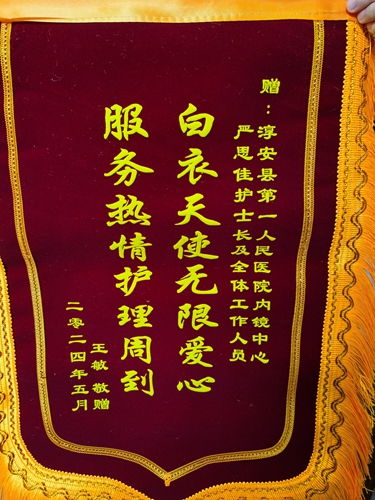 赠：淳安县第一人民医院内镜中心
严恩佳护士长及全体工作人员
白衣天使无限爱心
服务热情护理周到
王敏 敬赠
二零二四年五月